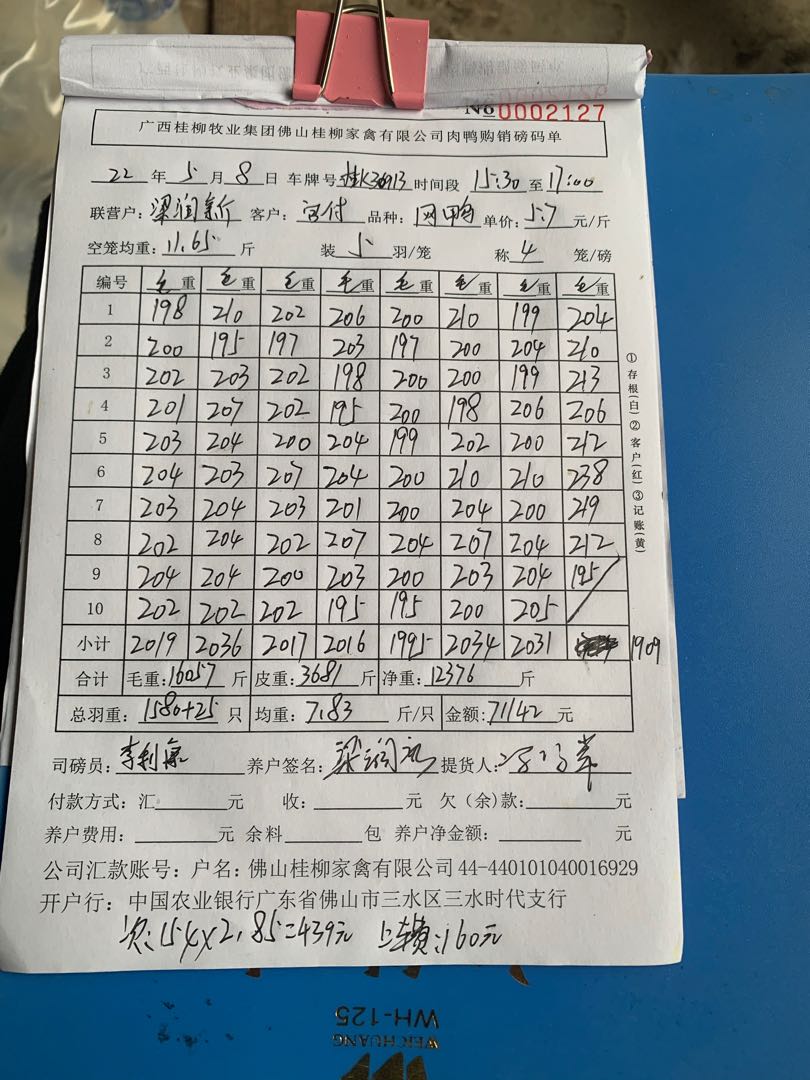 No 0002127
广西桂柳牧业集团佛山桂柳家禽有限公司肉鸭购销磅码单
22 年 5 月 8 日 车牌号 时间段 15:30 至 17:00
联营户: 梁润新 客户: 品种: 网鸭 单价: 5.7 元/斤
空笼均重: 11.65 斤 装 5 羽/笼 称 4 笼/磅
编号 毛重 毛重 毛重 毛重 毛重 毛重 毛重 毛重
1 198 210 202 206 200 210 199 204
2 200 195 197 203 197 200 204 210
3 202 203 202 198 200 200 199 213
4 201 207 202 195 200 198 206 206
5 203 204 200 204 199 202 200 212
6 204 203 207 204 200 210 210 238
7 203 204 203 201 200 204 200 219
8 202 204 202 207 204 207 204 212
9 204 204 200 203 200 203 204 195
10 202 202 202 195 195 200 205
小计 2019 2036 2017 2016 1995 2034 2031 1909
合计 毛重: 16057 斤 皮重: 3681 斤 净重: 12376 斤
总羽重: 1580+25 只 均重: 7.83 斤/只 金额: 71142 元
司磅员: 李利 养户签名: 梁润 提货人:
付款方式: 汇 元 收: 元 欠(余)款: 元
养户费用: 元 余料 包 养户净金额: 元
公司汇款账号: 户名: 佛山桂柳家禽有限公司 44-440101040016929
开户行: 中国农业银行广东省佛山市三水区三水时代支行
次: 154×2.85=439元 上车费: 160元
①存根(白)②客户(红)③记账(黄)
WH-125
WEICHUANG